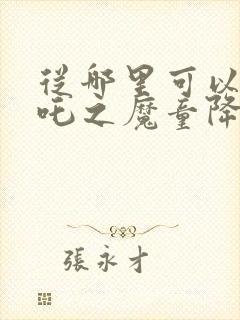 從哪里可以
吒之魔童降
張永才